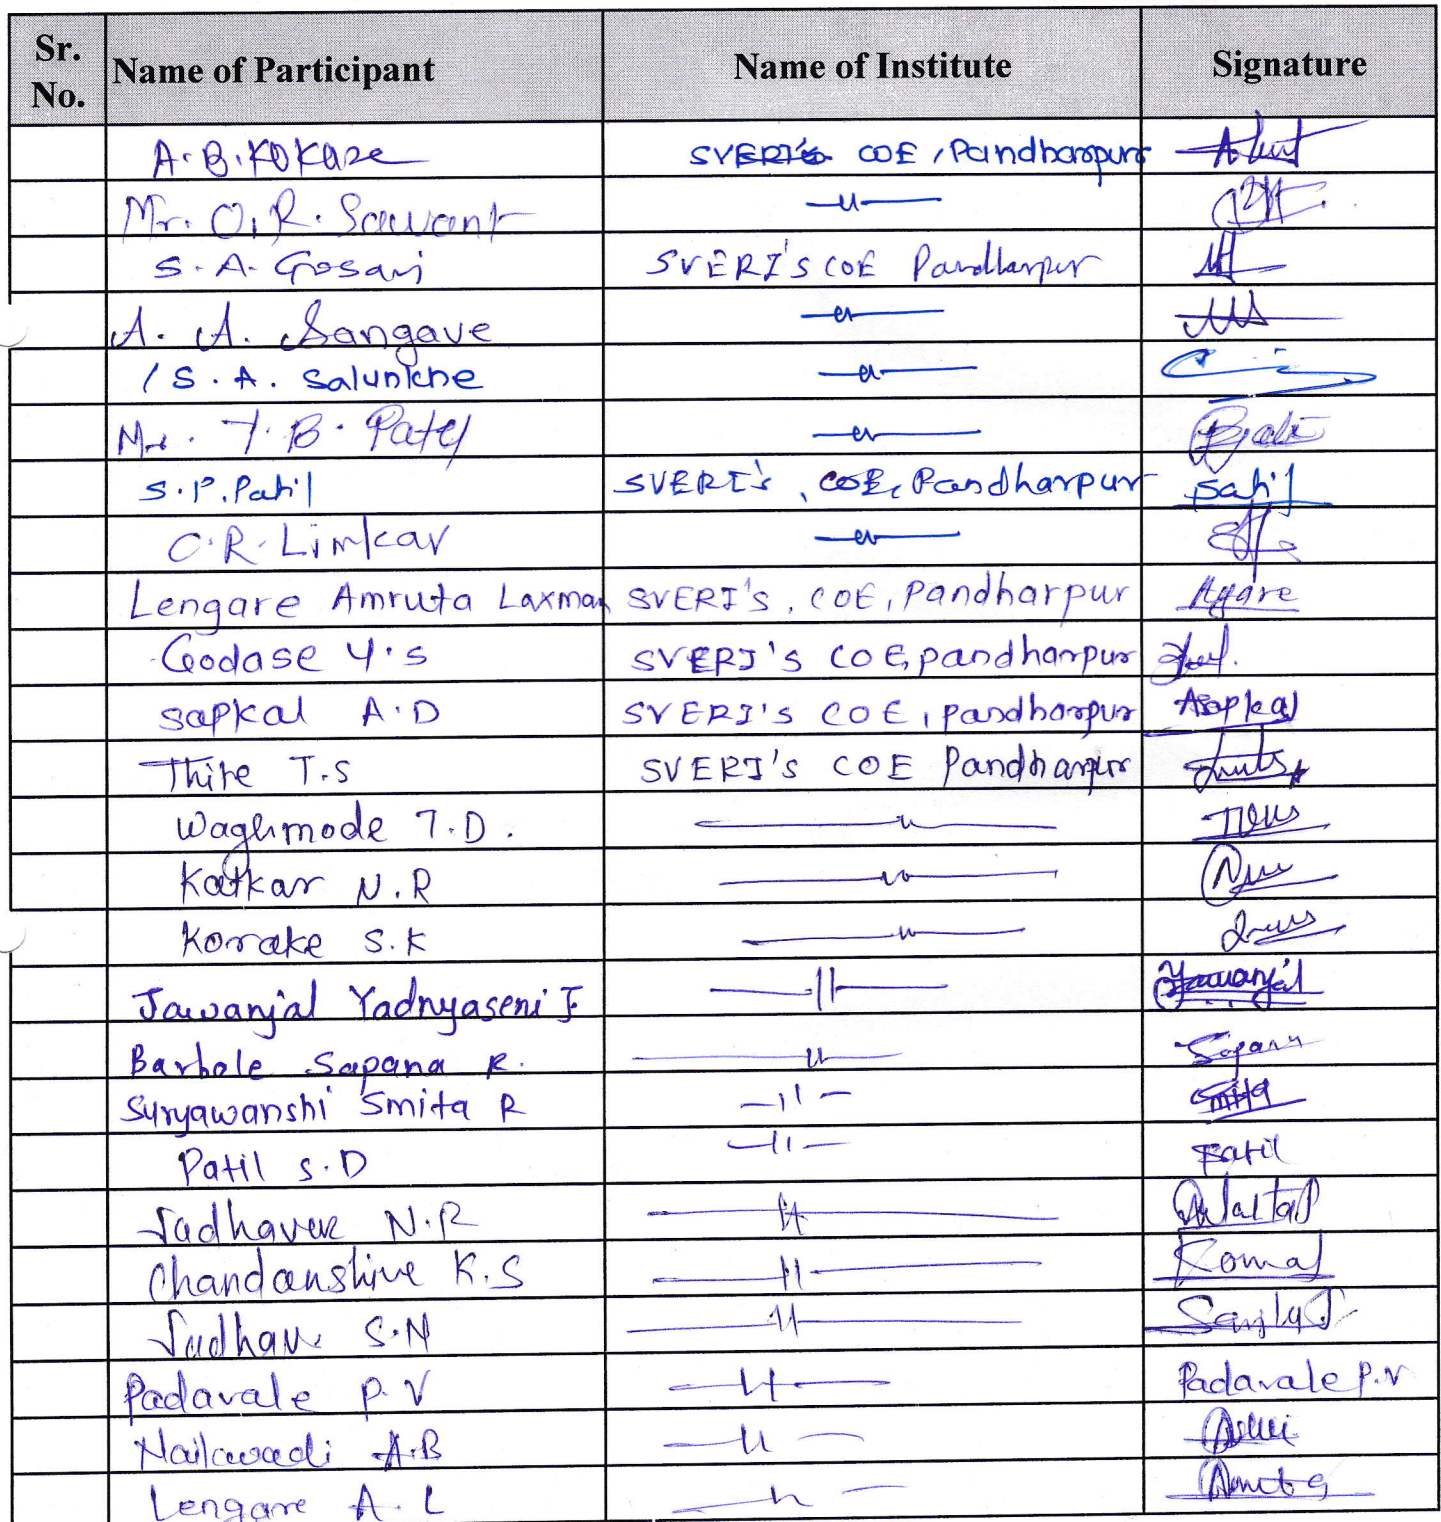 Sr. No. Name of Participant Name of Institute Signature
A.B.Kokare SVERI's COE, Pandharpur
Mr. O.R. Sawant —"—
S.A. Gosavi SVERI'S COE Pandharpur
A. A. Sangave —"—
S.A. Salunkhe —"—
Mr. Y.B. Patil —"—
S.P. Patil SVERI's, COE, Pandharpur Patil
C.R. Limkar —"—
Lengare Amruta Laxman SVERI's, COE, Pandharpur
Godase Y.S SVERI's COE, pandharpur
Sapkal A.D SVERI's COE, pandharpur ASapkal
Thite T.S SVERI's COE Pandharpur
Waghmode T.D. —"—
Katkar N.R —"—
Korake S.K —"—
Jawanjal Yadnyaseni J —"— Jawanjal
Barbole Sapana R. —"— Sapana
Suryawanshi Smita R —"— Smita
Patil S.D —"— Patil
Jadhavar N.R —"—
Chandanshive K.S —"— Komal
Jadhav S.N —"—
Padavale P.V —"— Padavale P.V
Nailawadi A.B —"—
Lengare A.L —"— Amruta